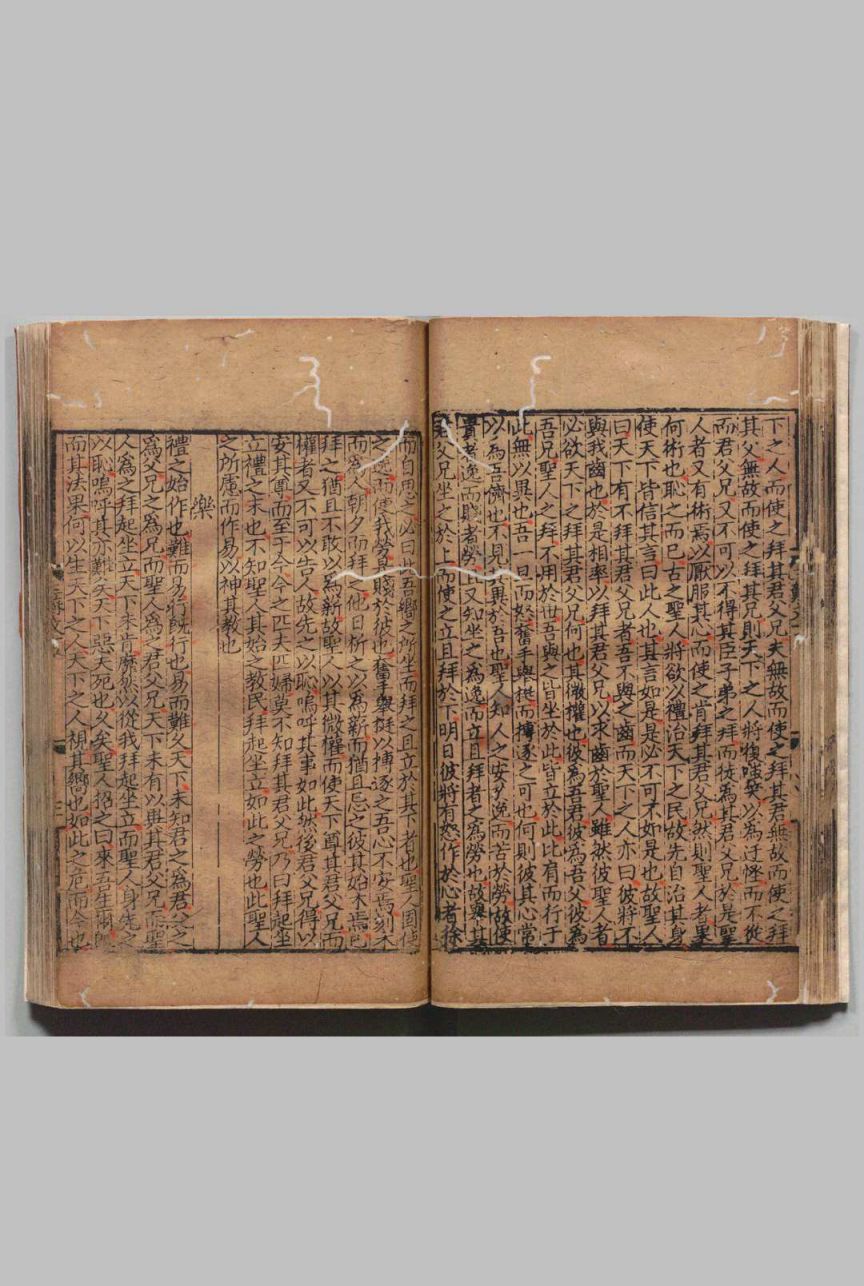 下之人而使之拜其君父兄夫無故而使之拜其君無故而使之拜
其父無故而使之拜其兄則天下之人將復嗤笑以為迂恠而不從
而君父兄又不可以不得其臣子弟之拜而徒為其君父兄於是聖
人者又有術焉以厭服其心而使之肯拜其君父兄然則聖人者果
何術也恥之而已古之聖人將欲以禮治天下之民故先自治其身
使天下皆信其言曰此人也其言如是是必不可不如是也故聖人
曰天下有不拜其君父兄者吾不與之齒而天下之人亦曰彼將不
與我齒也於是相率以拜其君父兄以求齒於聖人雖然彼聖人者
必欲天下之拜其君父兄何也其微權也彼為吾君彼為吾父彼為
吾兄聖人之拜不用於世吾與之皆坐於此皆立於此比肩而行于
此無以異也吾一旦而怒奮手舉挺而搏逐之可也何則彼其心常
以為吾儕也不見其異於吾也聖人知人之安於逸而苦於勞故使
貴者逸而賤者勞且又知坐之為逸而立且拜者之為勞也故舉其
君父兄坐之於上而使之立且拜於下明日彼將有怒作於心者徐
而自思之必曰此吾嚮之所坐而拜之且立於其下者也聖人固使
之逸而使我勞是賤於彼也奮手舉挺以搏逐之吾心不安焉刻木
而為人朝夕而拜之他日析之以為薪而猶且忌之彼其始木焉已
拜之猶且不敢以為薪故聖人以其微權而使天下尊其君父兄而
權者又不可以告人故先之以恥嗚呼其事如此然後君父兄得以
安其尊而至于今今之匹夫匹婦莫不知拜其君父兄乃曰拜起坐
立禮之末也不知聖人其始之教民拜起坐立如此之勞也此聖人
之所慮而作易以神其教也
樂
禮之始作也難而易行既行也易而難久天下未知君之為君父之
為父兄之為兄而聖人為之君父兄天下未有以異其君父兄而聖
人為之拜起坐立天下未肯靡然以從我拜起坐立而聖人身先之
以恥嗚呼其亦難矣天下惡夫死也久矣聖人招之曰來吾生爾既
而其法果何以生天下之人天下之人視其嚮也如此之危而今也